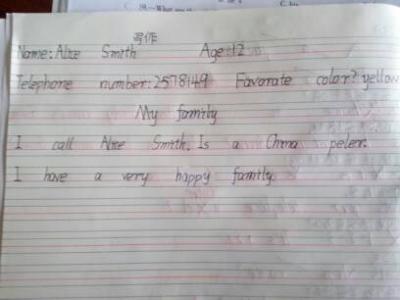 写作
Name: Alice Smith Age: 12
Telephone number: 2578149 Favorate color? yellow
My family
I call Alice Smith. Is a China peler.
I have a very happy family.